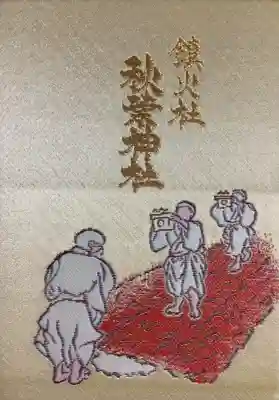 鎮火社
秋葉神社